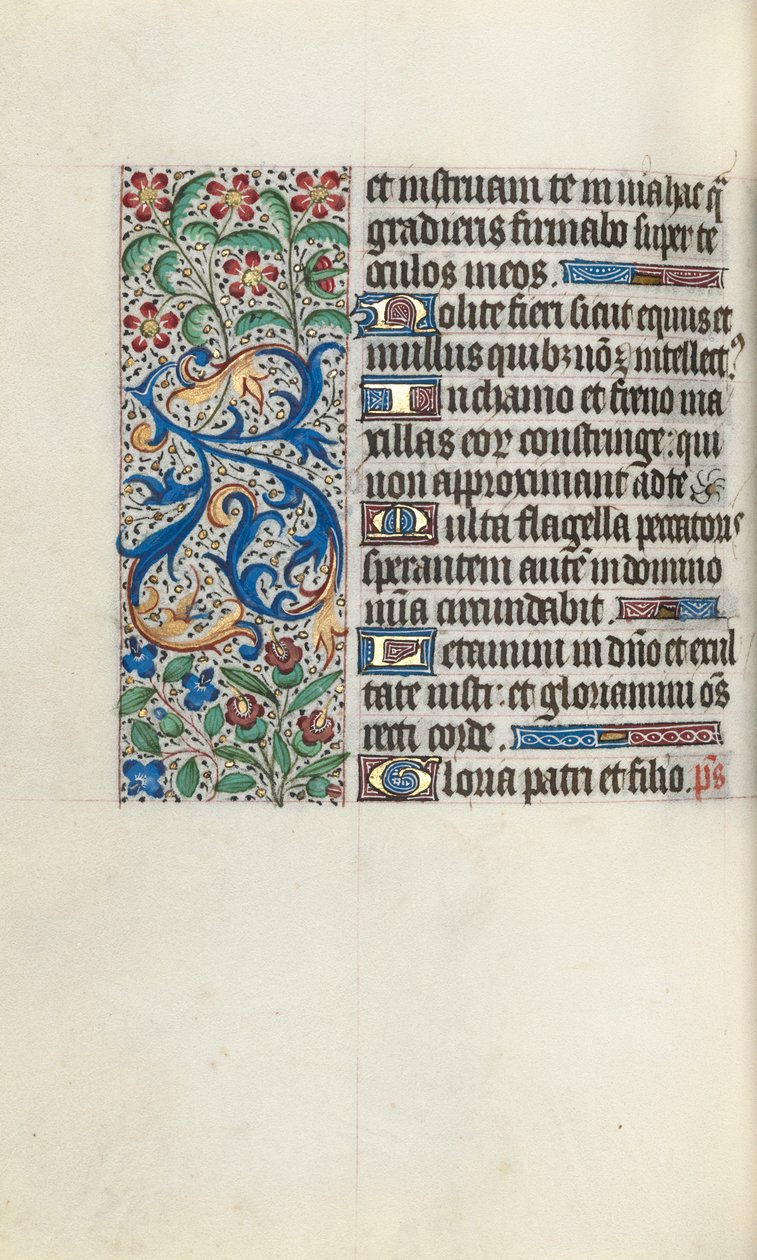 et instruam te in uia hac qͣ
gradieris firmabo super te
oculos meos.
Nolite fieri sicut equus et
mullus quibꝫ nō ꝫ intellectꝰ
In chamo et freno ma
xillas eoꝝ constringe: qui
non approximant ad te
Multa flagella peccatoris
sperantem autē in domino
mīa circundabit.
Letamini in dño et exul
tate iusti: et gloriamini oēs
recti corde.
Gloria patri et filio. p̄s